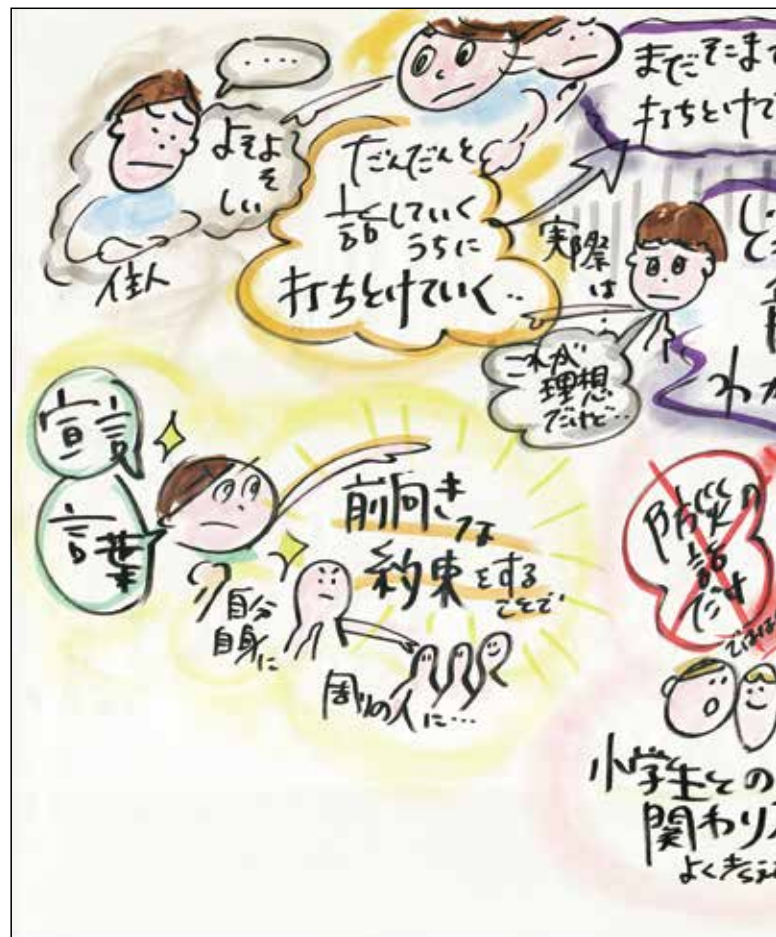 ‥‥
よそよ
そ
しい
住人
だんだんと
話していく
うちに
打ちとけていく‥
まだそこまで
打ちとけて
実際
は…
これが
理想
だけど…
わか
宣言
言葉
前向き
な
約束をする
ことで
自分
自身に
周りの人に…
防災の
話
だけ
ではは
小学生との
関わり
よく考え